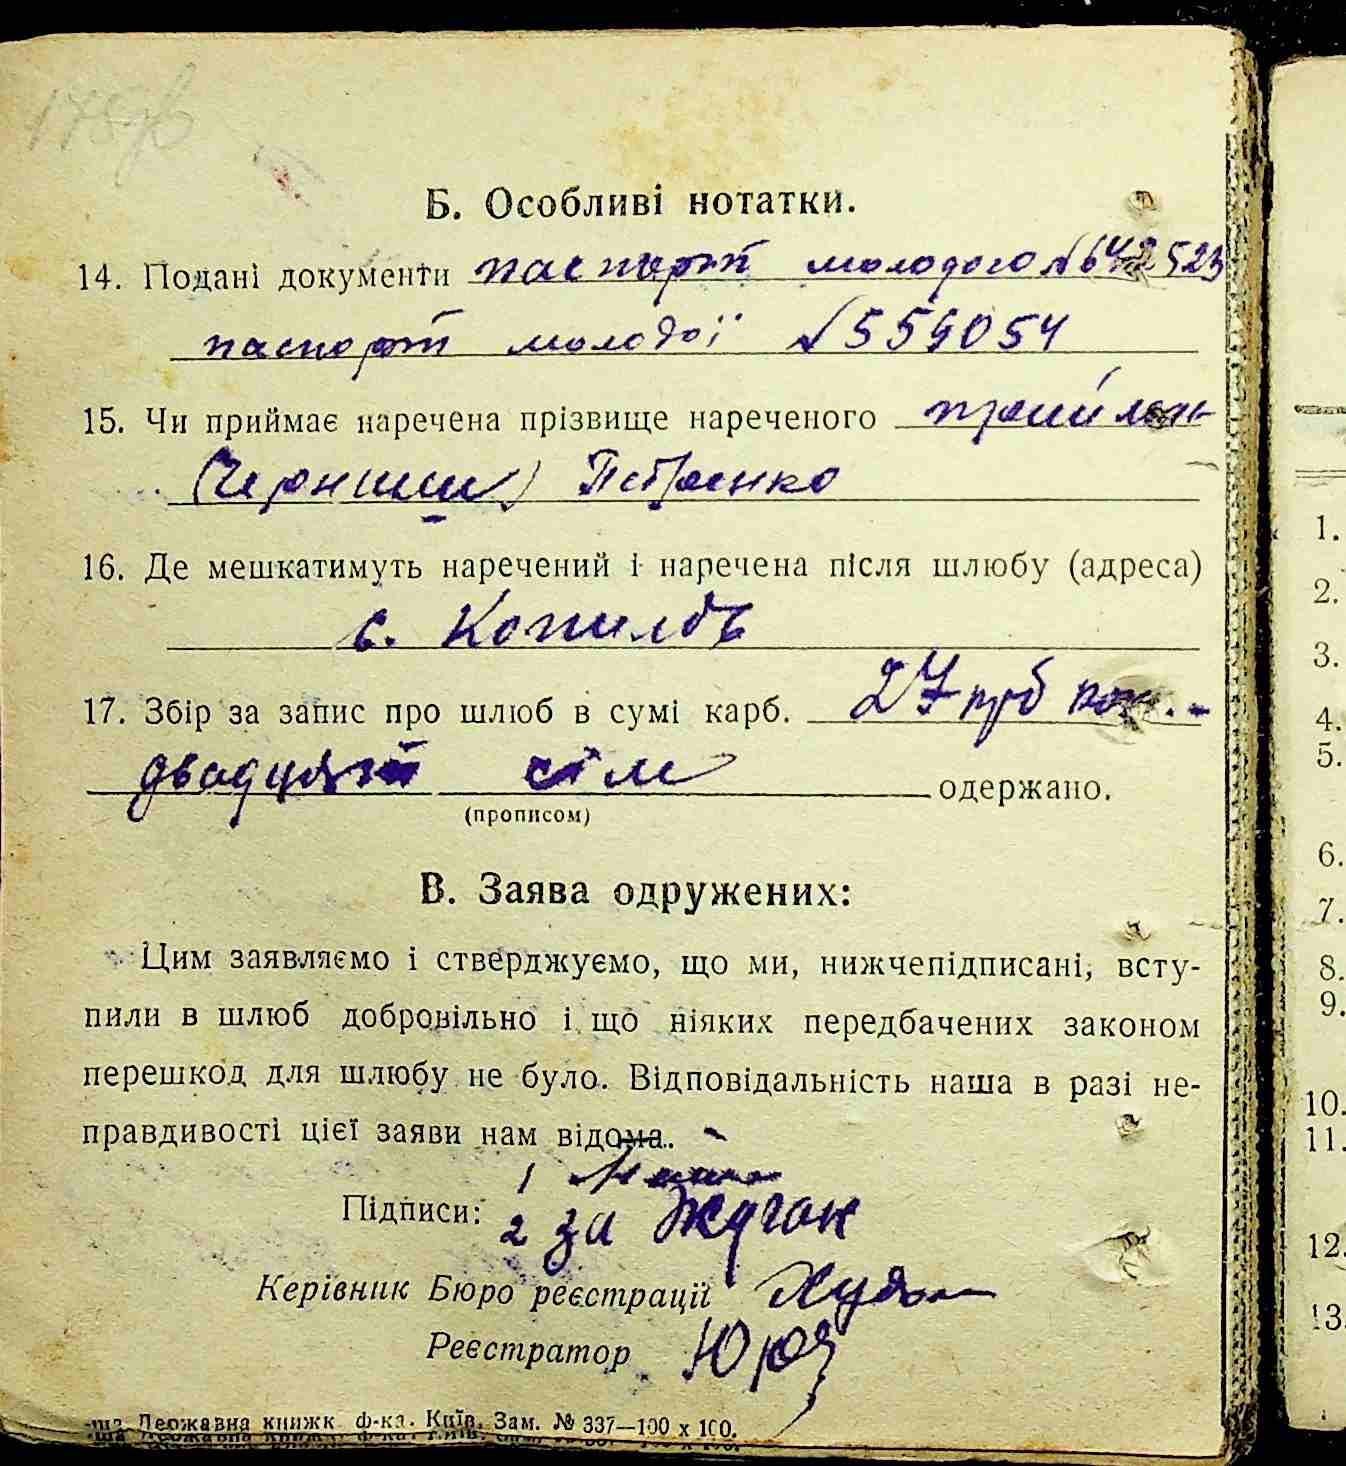 Б. Особливі нотатки.
14. Подані документи паспорт молодого № 642523
паспорт молодої № 559054
15. Чи приймає наречена прізвище нареченого
Петренко
16. Де мешкатимуть наречений і наречена після шлюбу (адреса)
с. Копилів
17. Збір за запис про шлюб в сумі карб. 27 крб
двадцять сім одержано.
(прописом)
В. Заява одружених:
Цим заявляємо і стверджуємо, що ми, нижчепідписані, всту-
пили в шлюб добровільно і що ніяких передбачених законом
перешкод для шлюбу не було. Відповідальність наша в разі не-
правдивості цієї заяви нам відома.
Підписи: 1
2 за
Керівник Бюро реєстрації
Реєстратор
Державна книжк. ф-ка. Київ. Зам. № 337—100 х 100.
1.
2.
3.
4.
5.
6.
7.
8.
9.
10.
11.
12.
13.